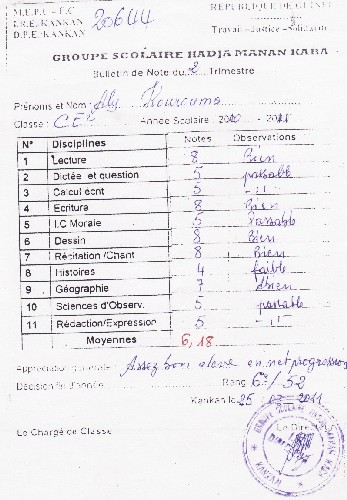 M.E.P.U - E.C
I.R.E./KANKAN
D.P.E./KANKAN
20644
REPUBLIQUE DE GUINEE
Travail - Justice - Solidarité
GROUPE SCOLAIRE HADJA MANAN KABA
Bulletin de Note du 2 Trimestre
Prénoms et Nom Aly Kourouma
Classe : Année Scolaire : 2010 - 2011
N° Disciplines Notes Observations
1 Lecture 8 Bien
2 Dictée et question 5 passable
3 Calcul écrit 5 - " -
4 Ecriture 8 Bien
5 I.C Morale 5 Passable
6 Dessin 8 Bien
7 Récitation /Chant 8 Bien
8 Histoires 4 faible
9 Géographie 7 Bien
10 Sciences d'Observ. 5 passable
11 Rédaction/Expression 5 - " -
Moyennes 6,18
Appréciation générale Assez bon élève en net progression
Décision fin d'année Rang 6e/52
Kankan le 25 2011
Le Chargé de Classe Le Directeur
KANKAN